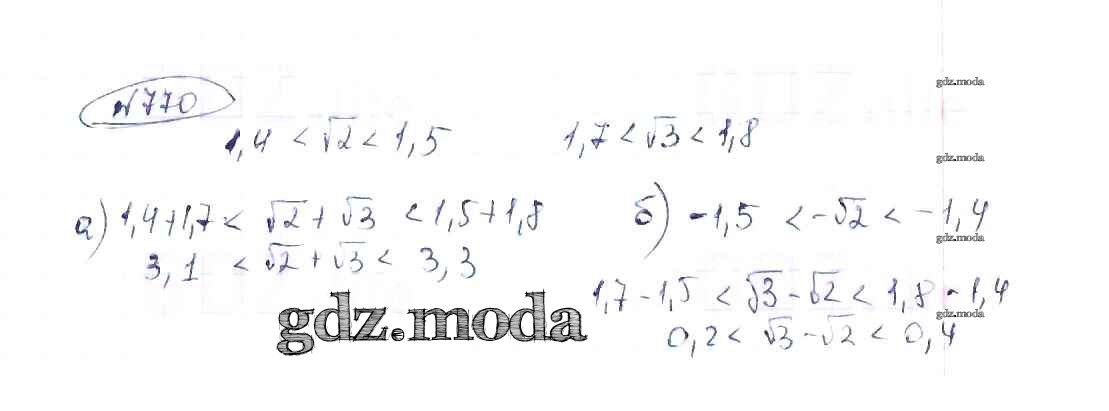 №770
1,4 < √2 < 1,5
1,7 < √3 < 1,8
а) 1,4+1,7 < √2 + √3 < 1,5+1,8
3,1 < √2 + √3 < 3,3
б) -1,5 < -√2 < -1,4
1,7 - 1,5 < √3 - √2 < 1,8 - 1,4
0,2 < √3 - √2 < 0,4
gdz.moda
gdz.moda
gdz.moda
gdz.moda
gdz.moda